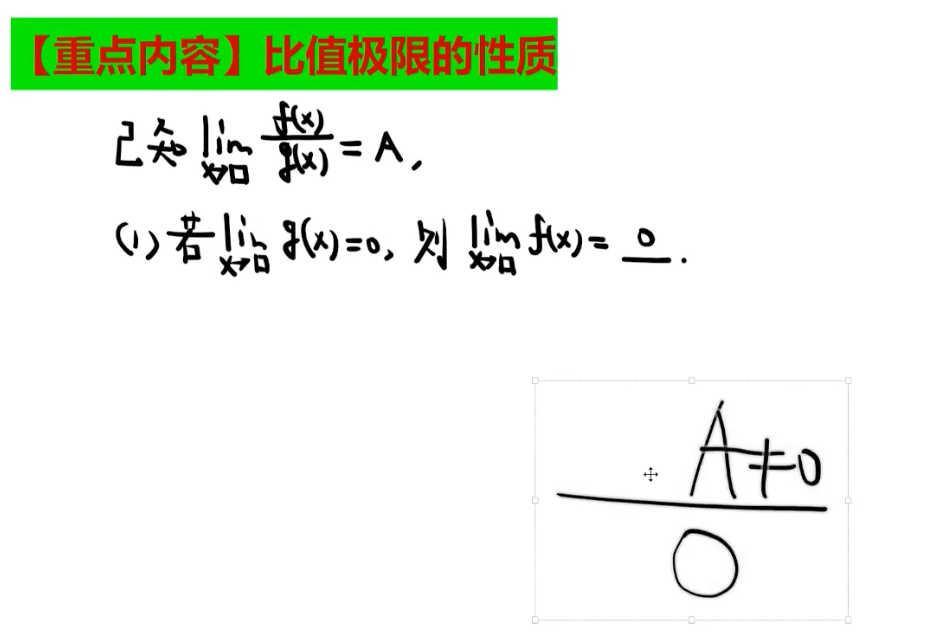 【重点内容】比值极限的性质
已知 lim x→□ f(x)/g(x) = A,
(1) 若 lim x→□ g(x)=0, 则 lim x→□ f(x)= 0 .
A≠0
0